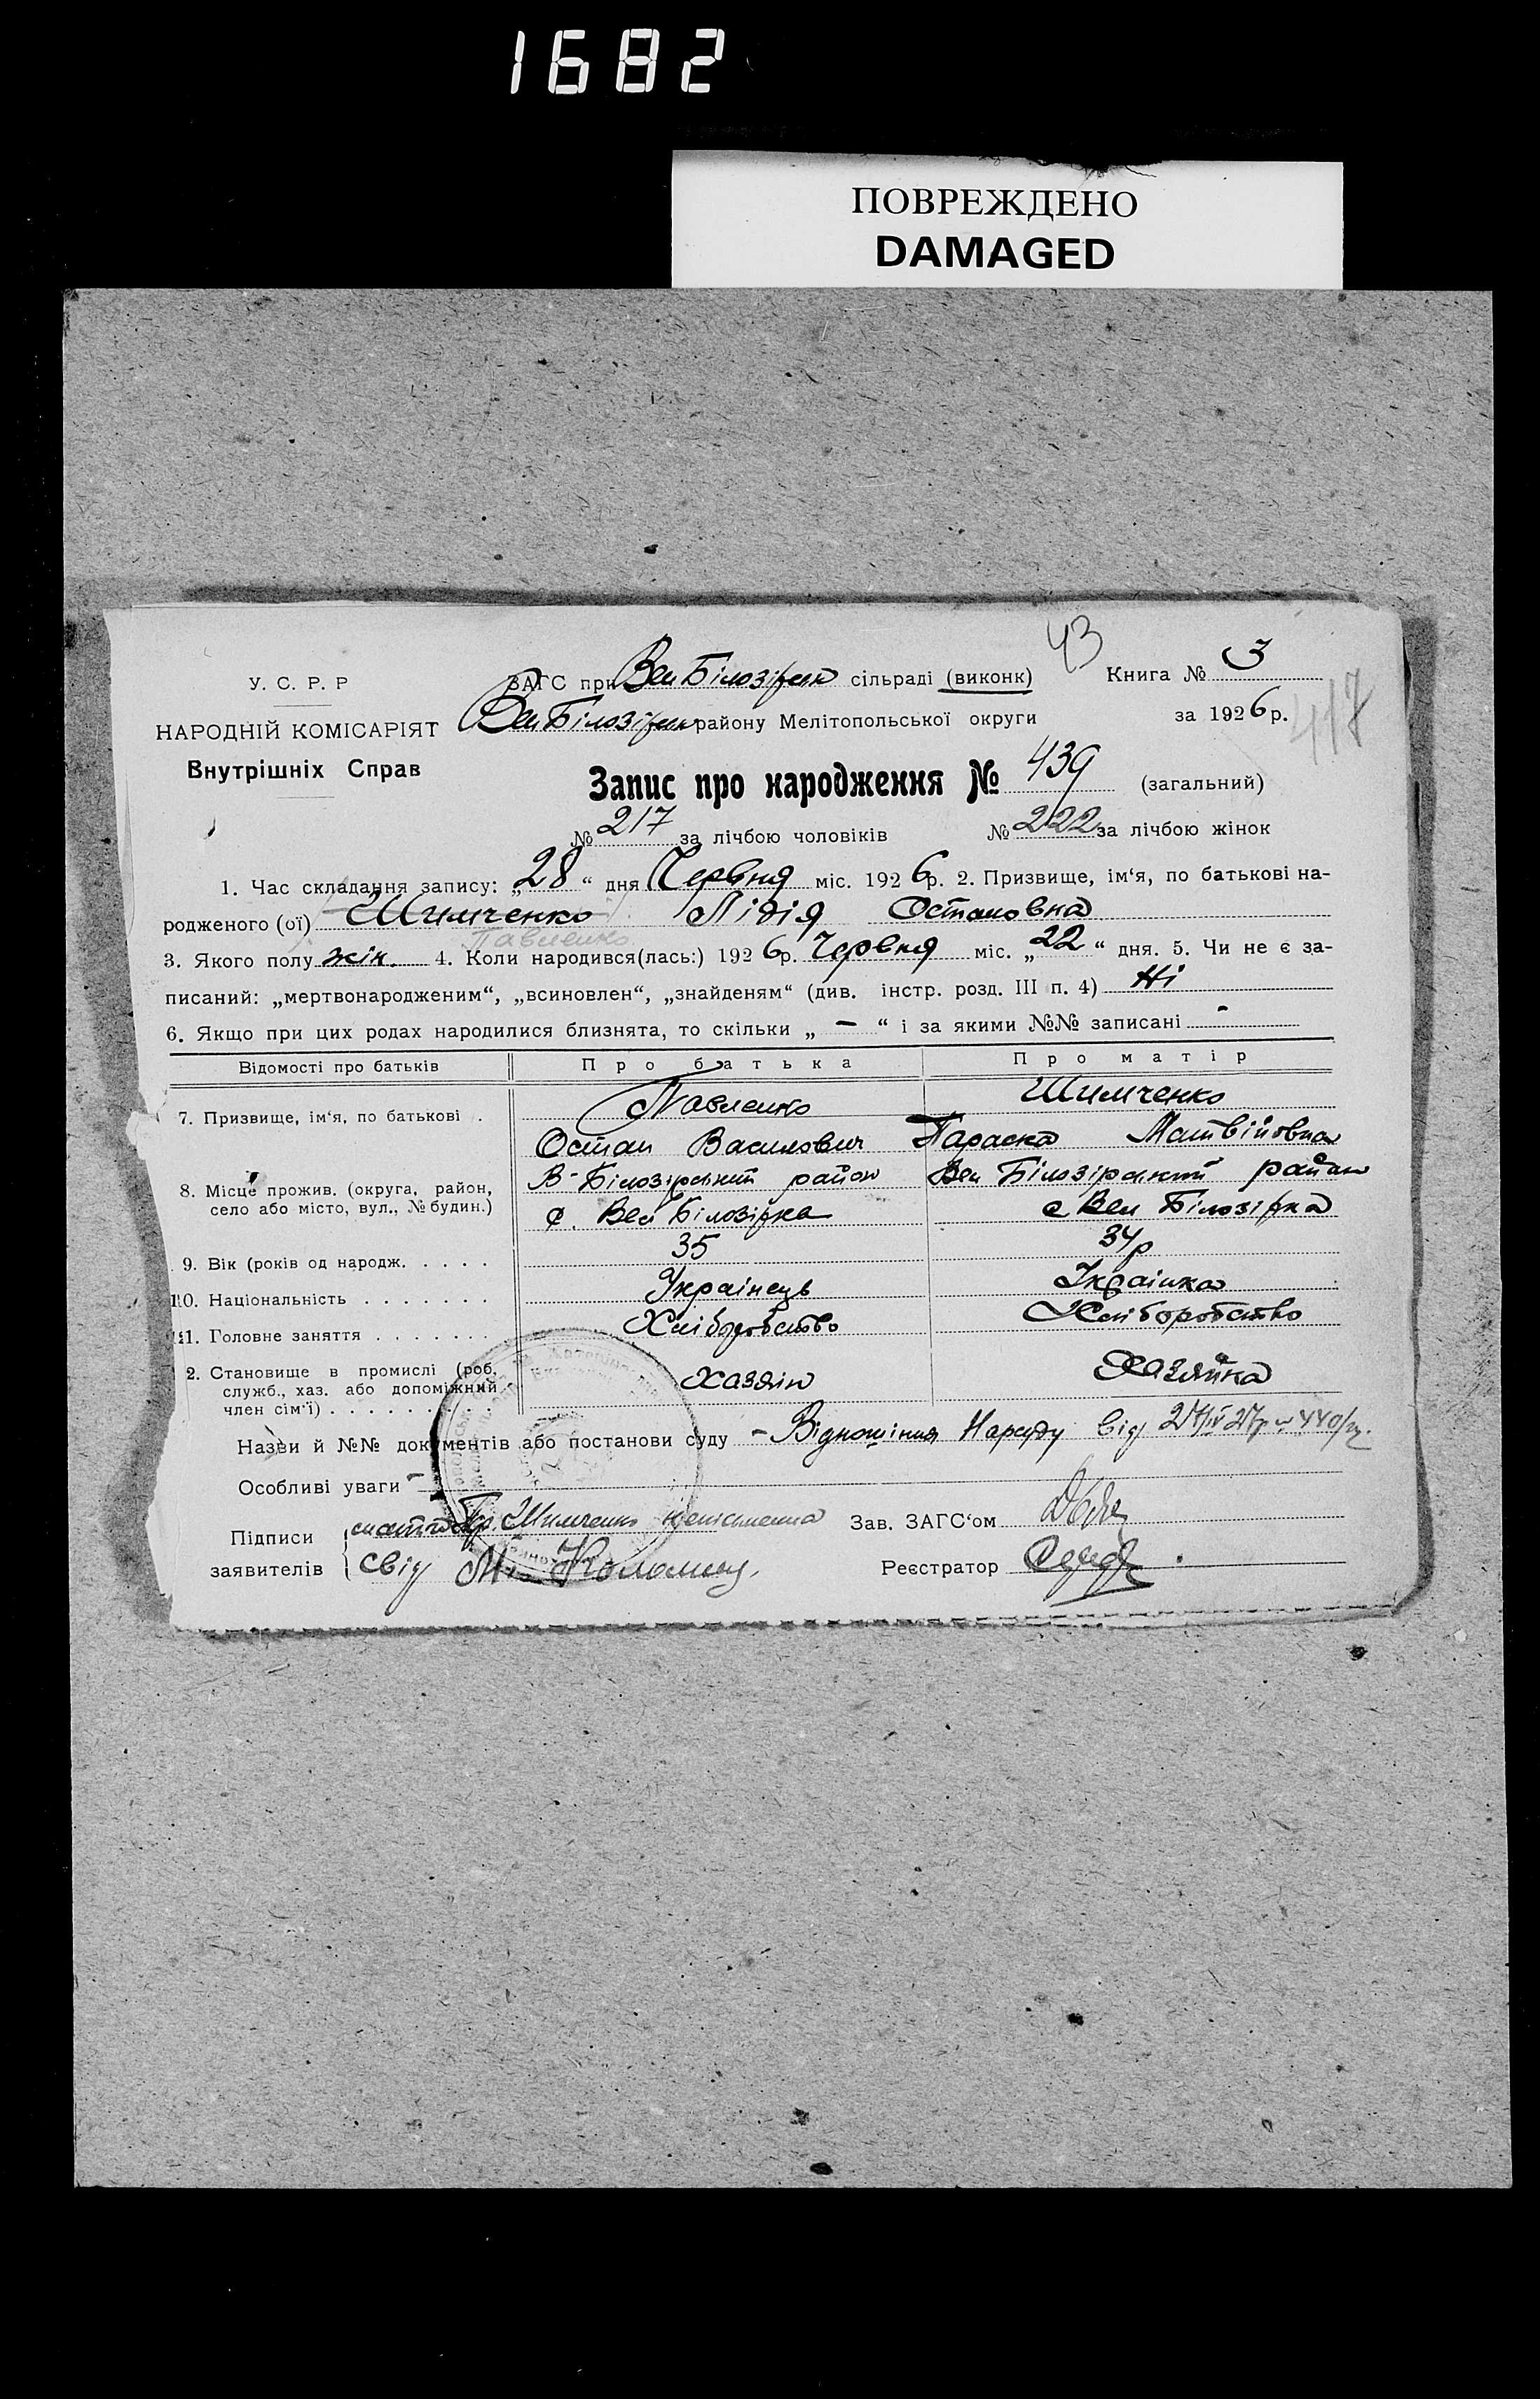 1682
ПОВРЕЖДЕНО
DAMAGED
43
У. С. Р. Р
ЗАГС при Вел Білозірск сільраді (виконк)
Книга № 3
НАРОДНІЙ КОМІСАРІЯТ
Вел Білозірск району Мелітопольської округи
за 1926 р.
417
Внутрішніх Справ
Запис про народження № 439 (загальний)
№ 217 за лічбою чоловіків № 222 за лічбою жінок
1. Час складання запису: „28“ дня Червня міс. 1926 р. 2. Призвище, ім‘я, по батькові на-
родженого (ої) Шимченко Лідія Остаповна
Павленко
3. Якого полу жін. 4. Коли народився(лась:) 1926 р. Червня міс. „22“ дня. 5. Чи не є за-
писаний: „мертвонародженим“, „всиновлен“, „знайденям“ (див. інстр. розд. III п. 4) Ні
6. Якщо при цих родах народилися близнята, то скільки „ — “ і за якими №№ записані -
Відомості про батьків Про батька Про матір
7. Призвище, ім‘я, по батькові . Павленко Шимченко
Остап Василович Параска Матвійовна
8. Місце прожив. (округа, район, В-Білозірский район Вел Білозірский район
село або місто, вул., № будин.) с. Вел Білозірка с Вел Білозірка
9. Вік (років од народж. . . . . 35 34р
10. Національність . . . . . . . Українець Українка
11. Головне заняття . . . . . . . Хліборобство Хліборобство
2. Становище в промислі (роб.
служб., хаз. або допоміжний Хазяін Хазяйка
член сім‘ї) . . . . . . . . .
Назви й №№ документів або постанови суду - Відношіння Нарсуду від
Особливі уваги -
Підписи Шимченко неписьменна Зав. ЗАГС‘ом
заявителів свід М. Коломиец. Реєстратор